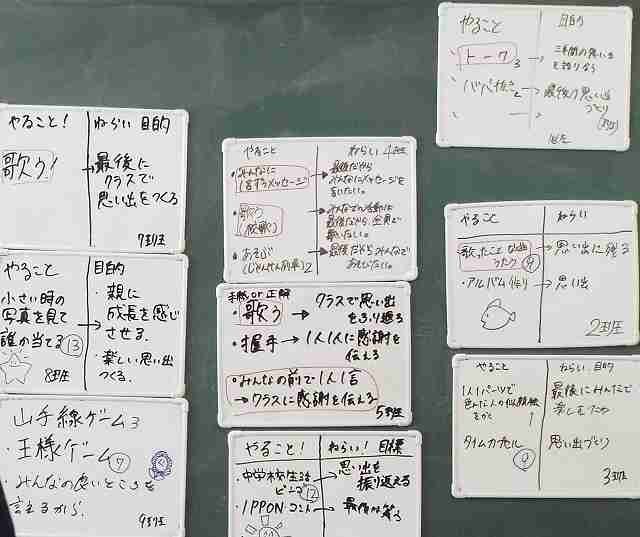 やること！
ねらい 目的
歌う！
→最後に
クラスで
思い出をつくる
7班
やること
目的
小さい時の
写真を見て
誰か当てる ⑬
→
・親に
成長を感じ
させる.
・楽しい思い出
つくる.
8班
山手線ゲーム 3
・王様ゲーム ⑦
・みんなの良いところを
言えるから.
9班
やること
ねらい 4班
・みんなに
1言ずつメッセージ
→最後だから
みんなにメッセージを
言いたい。
・歌う
(校歌)
→みんなでの活動は
最後だから、全員で
歌いたい。
・あそぶ
(じゃんけん列車) 2
→最後だから、みんなで
あそびたい。
手紙 or 正解
・歌う
→クラスで思い出
をふり返る
・握手
→1人1人に感謝を
伝える
・みんなの前で1人1言
→クラスに感謝を伝える
5班
やること！
ねらい！ 目標
・中学校生活
ビンゴ ⑫
→思い出を
振り返える
・IPPON
→最後は笑う
やること
目的
トーク 3
→三年間の思い出
を語り合う
ババ抜き 2
→最後の思い出
づくり
やること
ねらい
・歌ったことな曲
うたう ⑨
→思い出に残る
・アルバム作り
→思い出
2班
やること
ねらい. 目的
1人1パーツで
色んな人の似顔絵
をかく
最後にみんなで
楽しむため
タイムカプセル ⑨
思い出づくり
3班